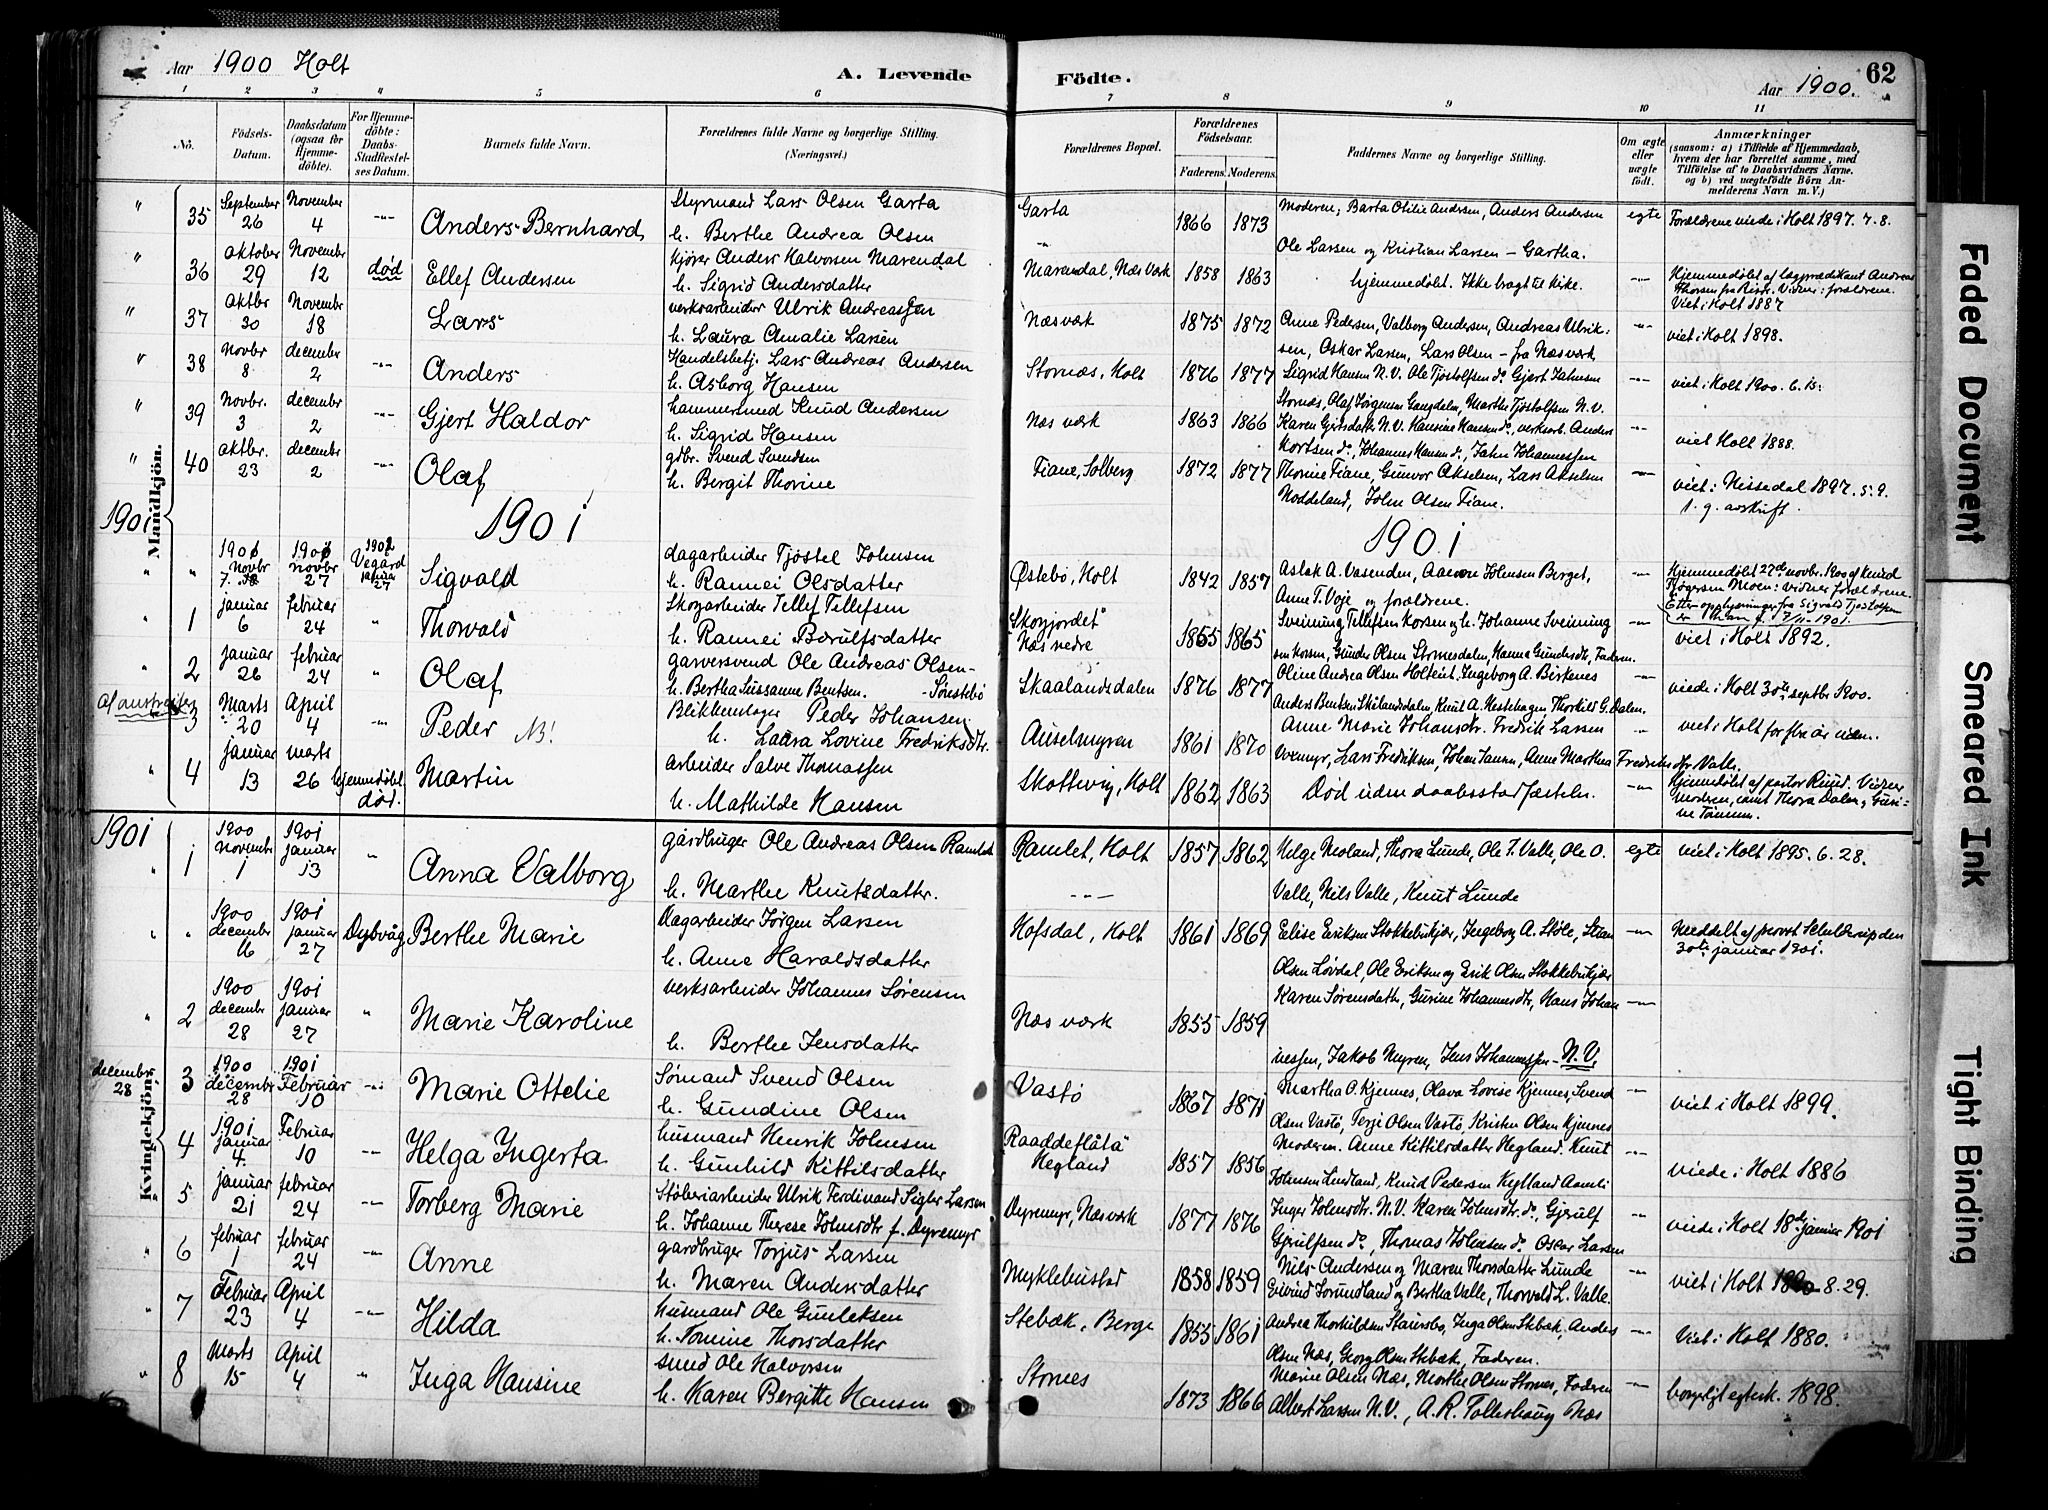 Aar 1900 Holt
A. Levende Födte.
Aar 1900.
62
1 2 3 4 5 6 7 8 9 10 11
No.
Födsels-Datum.
Daabsdatum (ogsaa for Hjemmedöbte).
For Hjemmedöbte: Daabs-Stadfæstelses Datum.
Barnets fulde Navn.
Forældrenes fulde Navne og borgerlige Stilling. (Næringsvei.)
Forældrenes Bopæl.
Forældrenes Födselsaar.
Faderens. Moderens.
Faddernes Navne og borgerlige Stilling.
Om ægte eller uægte födt.
Anmærkninger
(saasom: a) i Tilfælde af Hjemmedaab, hvem der har forrettet samme, med Tilföielse af to Daabsvidners Navne, og b) ved uægtefödte Börn Anmelderens Navn m. V.)
Mandkjön.
" 35 September 26 November 4 -"- Anders Bernhard Styrmand Lars Olsen Garta
h. Berthe Andrea Olsen Garta 1866 1873 Moderen, Barta Otilie Andersen, Anders Andersen
Ole Larsen og Kristian Larsen - Gartha. egte Forældrene viede i Holt 1897. 7. 8.
" 36 oktober 29 Novembr 12 død Ellef Andersen kjører Anders Halvorsen Marendal
h. Sigrid Andersdatter Marendal, Næs Værk 1858 1863 hjemmedøbt. Ikke bragt til kirke. -"- Hjemmedøbt af lægprædikant Andreas
Thorsen fra Risør. Vidner: forældrene.
Viet i Holt 1887
" 37 oktbr 30 Novembr 18 Lars verksarbeider Ulrik Andreassen
h. Laura Amalie Larsen Næs værk 1875 1872 Anne Pedersen, Valborg Andersen, Andreas Ulrik-
sen, Oskar Larsen, Lars Olsen - fra Næsværk -"- viet i Holt 1898.
" 38 Novbr 8 december 2 -"- Anders Handelsbetj. Lars Andreas Andersen
h. Asborg Hansen Stornæs, Holt 1876 1877 Sigrid Hansen N.V. Ole Tjøstolfsen do Gjert Jahnsen
Stornæs, Olaf Jørgensen Gangdalen, Marthe Tjøstolfsen N.V. -"- viet i Holt 1900. 6. 15.
" 39 Novbr. 3 december 2 -"- Gjert Haldor hammersmed Knud Andersen
h. Sigrid Hansen Næs værk 1863 1866 Karen Gjertsdatr N.V. Hansine Hansen do, verksarb. Anders
Kortsen do, Johannes Hansen do, Jahn Johannessen -"- viet Holt 1888.
" 40 oktbr. 23 december 2 -"- Olaf gdbr. Svend Svendsen
h. Bergit Thorine Fiane, Solberg 1872 1877 Thorine Fiane, Gunvor Akselsen, Lars Akselsen
Noddeland, John Olsen Fiane. -"- viet i Nissedal 1897. 5. 9.
1. g. avskrift.
1901 1901 1901
" " Novbr 7. novbr 27 Vegard januar 27 Sigvald dagarbeider Tjøstel Johnsen
h. Rannei Olsdatter Østebø, Holt 1842 1857 Aslak A. Vasenden, Aanon Johnsen Berget,
Anne T. Voje og forældrene. -"- Hjemmedøbt 27de novbr. 1900 af Knud
Thøgersen Moen: vidner forældrene.
Efter opplysninger fra Sigvald Tjøstolfsen
er han f. 7/11-1901.
" 1 januar 6 februar 24 " Thorvald Skogarbeider Tellef Tellefsen
h. Rannei Bærulfsdatter Skogjordet Næs nedre 1865 1865 Sveinung Tellefsen Korsen og h. Johanne Sveinung
sen Korsen, Gunder Olsen Stornesdalen, Hanna Gundersdtr, Faderen. -"- viet i Holt 1892.
" 2 januar 26 februar 24 " Olaf garversvend Ole Andreas Olsen-
h. Bertha Sussanne Bentsen. - Sørestebø Skaalandsdalen 1876 1877 Oline Andrea Olsen Holteint. Ingeborg A. Birkenes
Anders Bentsen Skilandsdalen, Knut A. Hestehagen Thorkild G. Dalen. -"- viede i Holt 30te septbr 1900.
3 Marts 20 April 4 -"- Peder NB! Blikkenslager Peder Johansen
h. Laura Lovine Fredriksdtr. Auselmyren 1861 1870 Anne Marie Johansdr. Fredrik Larsen
Svenmyr, Lars Fredriksen, Johan Jansen, Anne Marthea Fredriksdtr Valle. " viet i Holt for flre år siden.
" 4 januar 13 marts 26 hjemmdøbt død. Martin arbeider Salve Thomassen
h. Mathilde Hansen Skottevig, Holt 1862 1863 Død uden daabsstadfæstelse. -"- Hjemmedøbt af pastor Ruud. Vidner
moderen, samt Thora Dalen, Guri-
ne Tommes.
1901
Kvindekjön.
" 1 1900 novembr 1 1901 januar 13 " Anna Valborg gårdbruger Ole Andreas Olsen Ramlet
h. Marthe Knutsdatter. Ramlet, Holt 1857 1862 Helge Moland, Thora Lunde, Ole T. Valle, Ole O.
Valle, Nils Valle, Knut Lunde egte viet i Holt 1895. 6. 28.
" " 1900 december 16 1901 januar 27 Dybvåg Berthe Marie Dagarbeider Jørgen Larsen
h. Anne Haraldsdatter Hofsdal, Holt 1861 1869 Elise Eriksen Stokkebukjær, Ingeborg A. Støle, Stian
Olsen Løvdal, Ole Eriksen og Erik Olsen Stokkebukjær -"- Meddelt af provst Schelderup den
30te januar 1901.
" 2 1900 december 28 1901 januar 27 " Marie Karoline verksarbeider Johannes Sørensen
h. Berthe Jensdatter Næs værk 1855 1859 Karen Sørensdatter, Gurine Johannesdtr, Hans Johan
nessen, Jakob Myren, Jens Johannessen - N.V. -"-
decembr 28 3 1900 december 28 1901 Februar 10 -"- Marie Ottelie Sømand Svend Olsen
h. Gundine Olsen Vastø 1867 1871 Martha O. Kjennes, Olava Lovise Kjennes, Svend
Olsen Vastø, Terje Olsen Vastø, Kristen Olsen Kjennes -"- viet i Holt 1899.
4 1901 januar 4. Februar 10 -"- Helga Ingerta husmand Henrik Johnsen
h. Gunhild Kittilsdatter Raaddeflåtå Hegland 1857 1856 Moderen. Anne Kittilsdatter Hegland. Knut
Johnsen Lindland, Knud Pedersen Kylland Aamli -"- viede i Holt 1886
5 januar 21 februar 24 -"- Torberg Marie Støberiarbeider Ulrik Ferdinand Sigler Larsen
h. Johanne Therese Johnsdtr f. Dyremyr Dyremyr, Næsværk 1877 1876 Inger Johnsdtr. N.V. Karen Johnsdtr do, Gjerulf
Gjerulfsen do, Thomas Johnsen do. Oscar Larsen -"- viede i Holt 18de januar 1901
" 6 februar 1 februar 24 -"- Anne gardbruger Torjus Larsen
h. Maren Andersdatter Myklebustad 1858 1859 Nils Andersen og Maren Thorsdatter Lunde
Eivind Lorundland og Bertha Valle, Thorvald L. Valle. -"- viet i Holt 1890 8. 29.
" 7 Februar 23 April 4 -"- Hilda husmand Ole Gunleksen
h. Tomine Thorsdatter Stebæk, Berge 1855 1861 Andrea Thorkildsen Stausbø, Inga Olsen Stebæk, Anders
Olsen Næs, Georg Olsen Stebæk, Faderen. -"- Viet i Holt 1880.
" 8 Marts 15 April 4 " Inga Hansine smed Ole Halvorsen
h. Karen Bergitte Hansen Stornes 1873 1866 Marie Olsen Næs, Marthe Olsen Stornes, Faderen
Albert Larsen N.V., A.R. Tallakhaug Næs -"- borgerligt egtesk. 1898.
Faded Document
Smeared Ink
Tight Binding